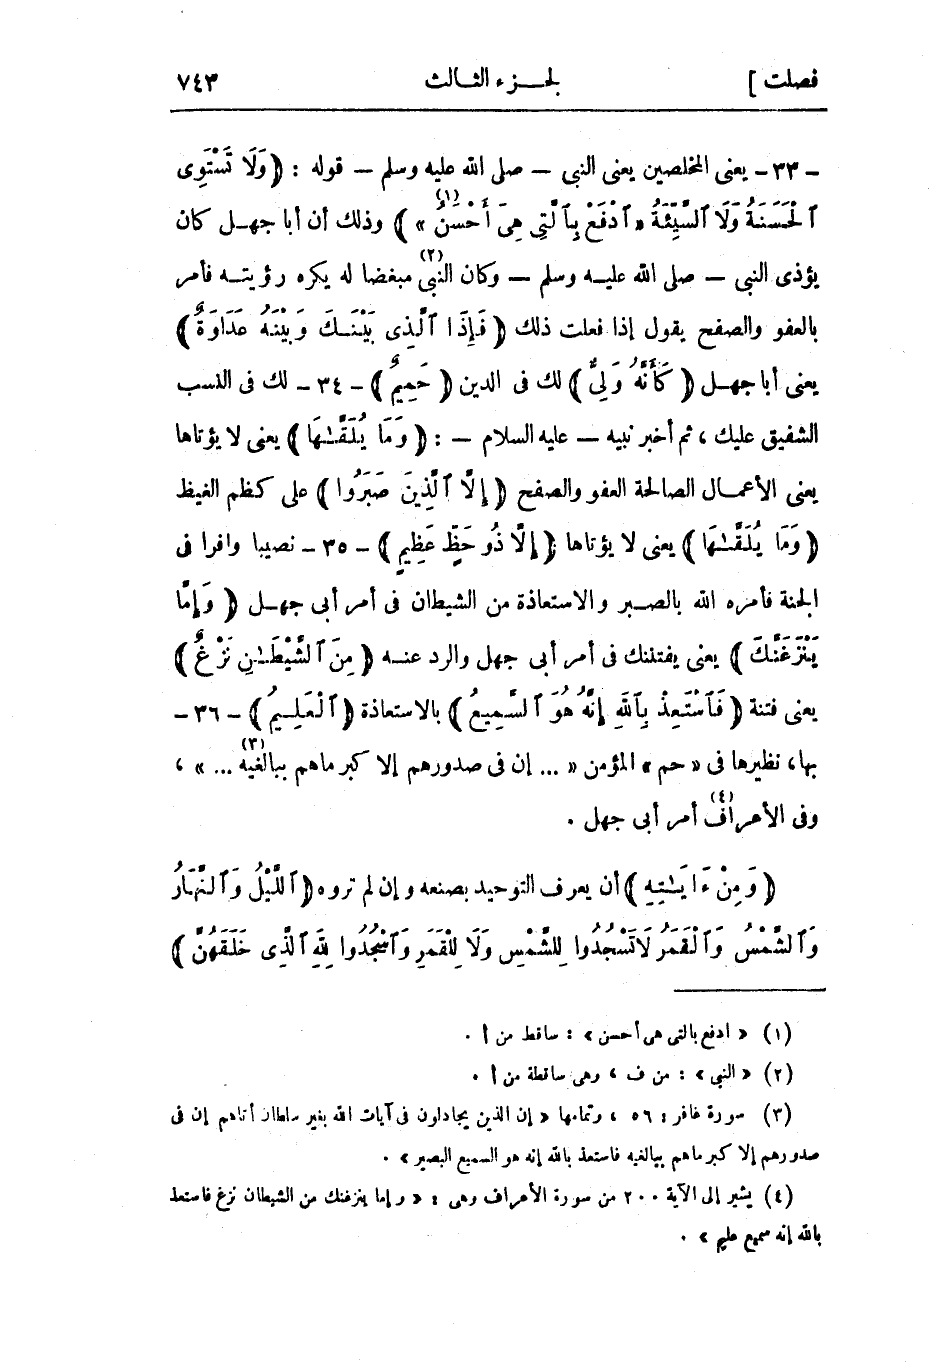 فصلت ] لجـــزء الثـالث ٧٤٣
- ٣٣ - يعنى المخلصين يعنى النبى — صلى الله عليه وسلم — قوله : ﴿ وَلَا تَسْتَوِى
ٱلْحَسَنَةُ وَلَا ٱلسَّيِّئَةُ « ٱدْفَعْ بِٱلَّتِى هِىَ أَحْسَنُ (١) » ﴾ وذلك أن أبا جهـل كان
يؤذى النبى — صلى الله عليـه وسلم — وكان النبى (٢) مبغضا له يكره رؤيتـه فأمر
بالعفو والصفح يقول إذا فعلت ذلك ﴿ فَإِذَا ٱلَّذِى بَيْنَـكَ وَبَيْنَهُ عَدَاوَةٌ ﴾
يعنى أبا جهـل ﴿ كَأَنَّهُ وَلِىٌّ ﴾ لك فى الدين ﴿ حَمِيمٌ ﴾ - ٣٤ - لك فى النسب
الشفيق عليك ، ثم أخبر نبيه — عليه السلام — : ﴿ وَمَا يُلَقَّـٰهَا ﴾ يعنى لا يؤتاها
يعنى الأعمـال الصالحة العفو والصفح ﴿ إِلَّا ٱلَّذِينَ صَبَرُوا ﴾ على كظم الغيظ
﴿ وَمَا يُلَقَّـٰهَا ﴾ يعنى لا يؤتاها ﴿ إِلَّا ذُو حَظٍّ عَظِيمٍ ﴾ - ٣٥ - نصيبا وافرا فى
الجنة فأمره الله بالصـبر والاستعاذة من الشيطان فى أمر أبى جهـل ﴿ وَإِمَّا
يَنْزَغَنَّكَ ﴾ يعنى يفتننك فى أمر أبى جهل والرد عنـه ﴿ مِنَ ٱلشَّيْطَـٰنِ نَزْغٌ ﴾
يعنى فتنة ﴿ فَٱسْتَعِذْ بِٱللَّهِ إِنَّهُ هُوَ ٱلسَّمِيعُ ﴾ بالاستعاذة ﴿ ٱلْعَلِـيمُ ﴾ - ٣٦ -
بها، نظيرها فى « حم » المؤمن « ... إن فى صدورهم إلا كبر ماهم ببالغيه (٣) ... » ،
وفى الأعراف (٤) أمر أبى جهل .
﴿ وَمِنْ ءَايَـٰتِهِ ﴾ أن يعرف التوحيد بصنعه وإن لم تروه ﴿ ٱللَّيْلُ وَٱلنَّهَارُ
وَٱلشَّمْسُ وَٱلْقَمَرُ لَا تَسْجُدُوا لِلشَّمْسِ وَلَا لِلْقَمَرِ وَٱسْجُدُوا لِلَّهِ ٱلَّذِى خَلَقَهُنَّ ﴾
(١) « ادفع بالتى هى أحسن » : ساقط من أ .
(٢) « النبى » : من ف ، وهى ساقطة من أ .
(٣) سورة غافر : ٥٦ ، وتمامها « إن الذين يجادلون فى آيات الله بغير سلطان أتاهم إن فى
صدورهم إلا كبر ماهم ببالغيه فاستعذ بالله إنه هو السميع البصير » .
(٤) يشير إلى الآية ٢٠٠ من سورة الأعراف وهى : « وإما ينزغنك من الشيطان نزغ فاستعذ
بالله إنه سميع عليم » .